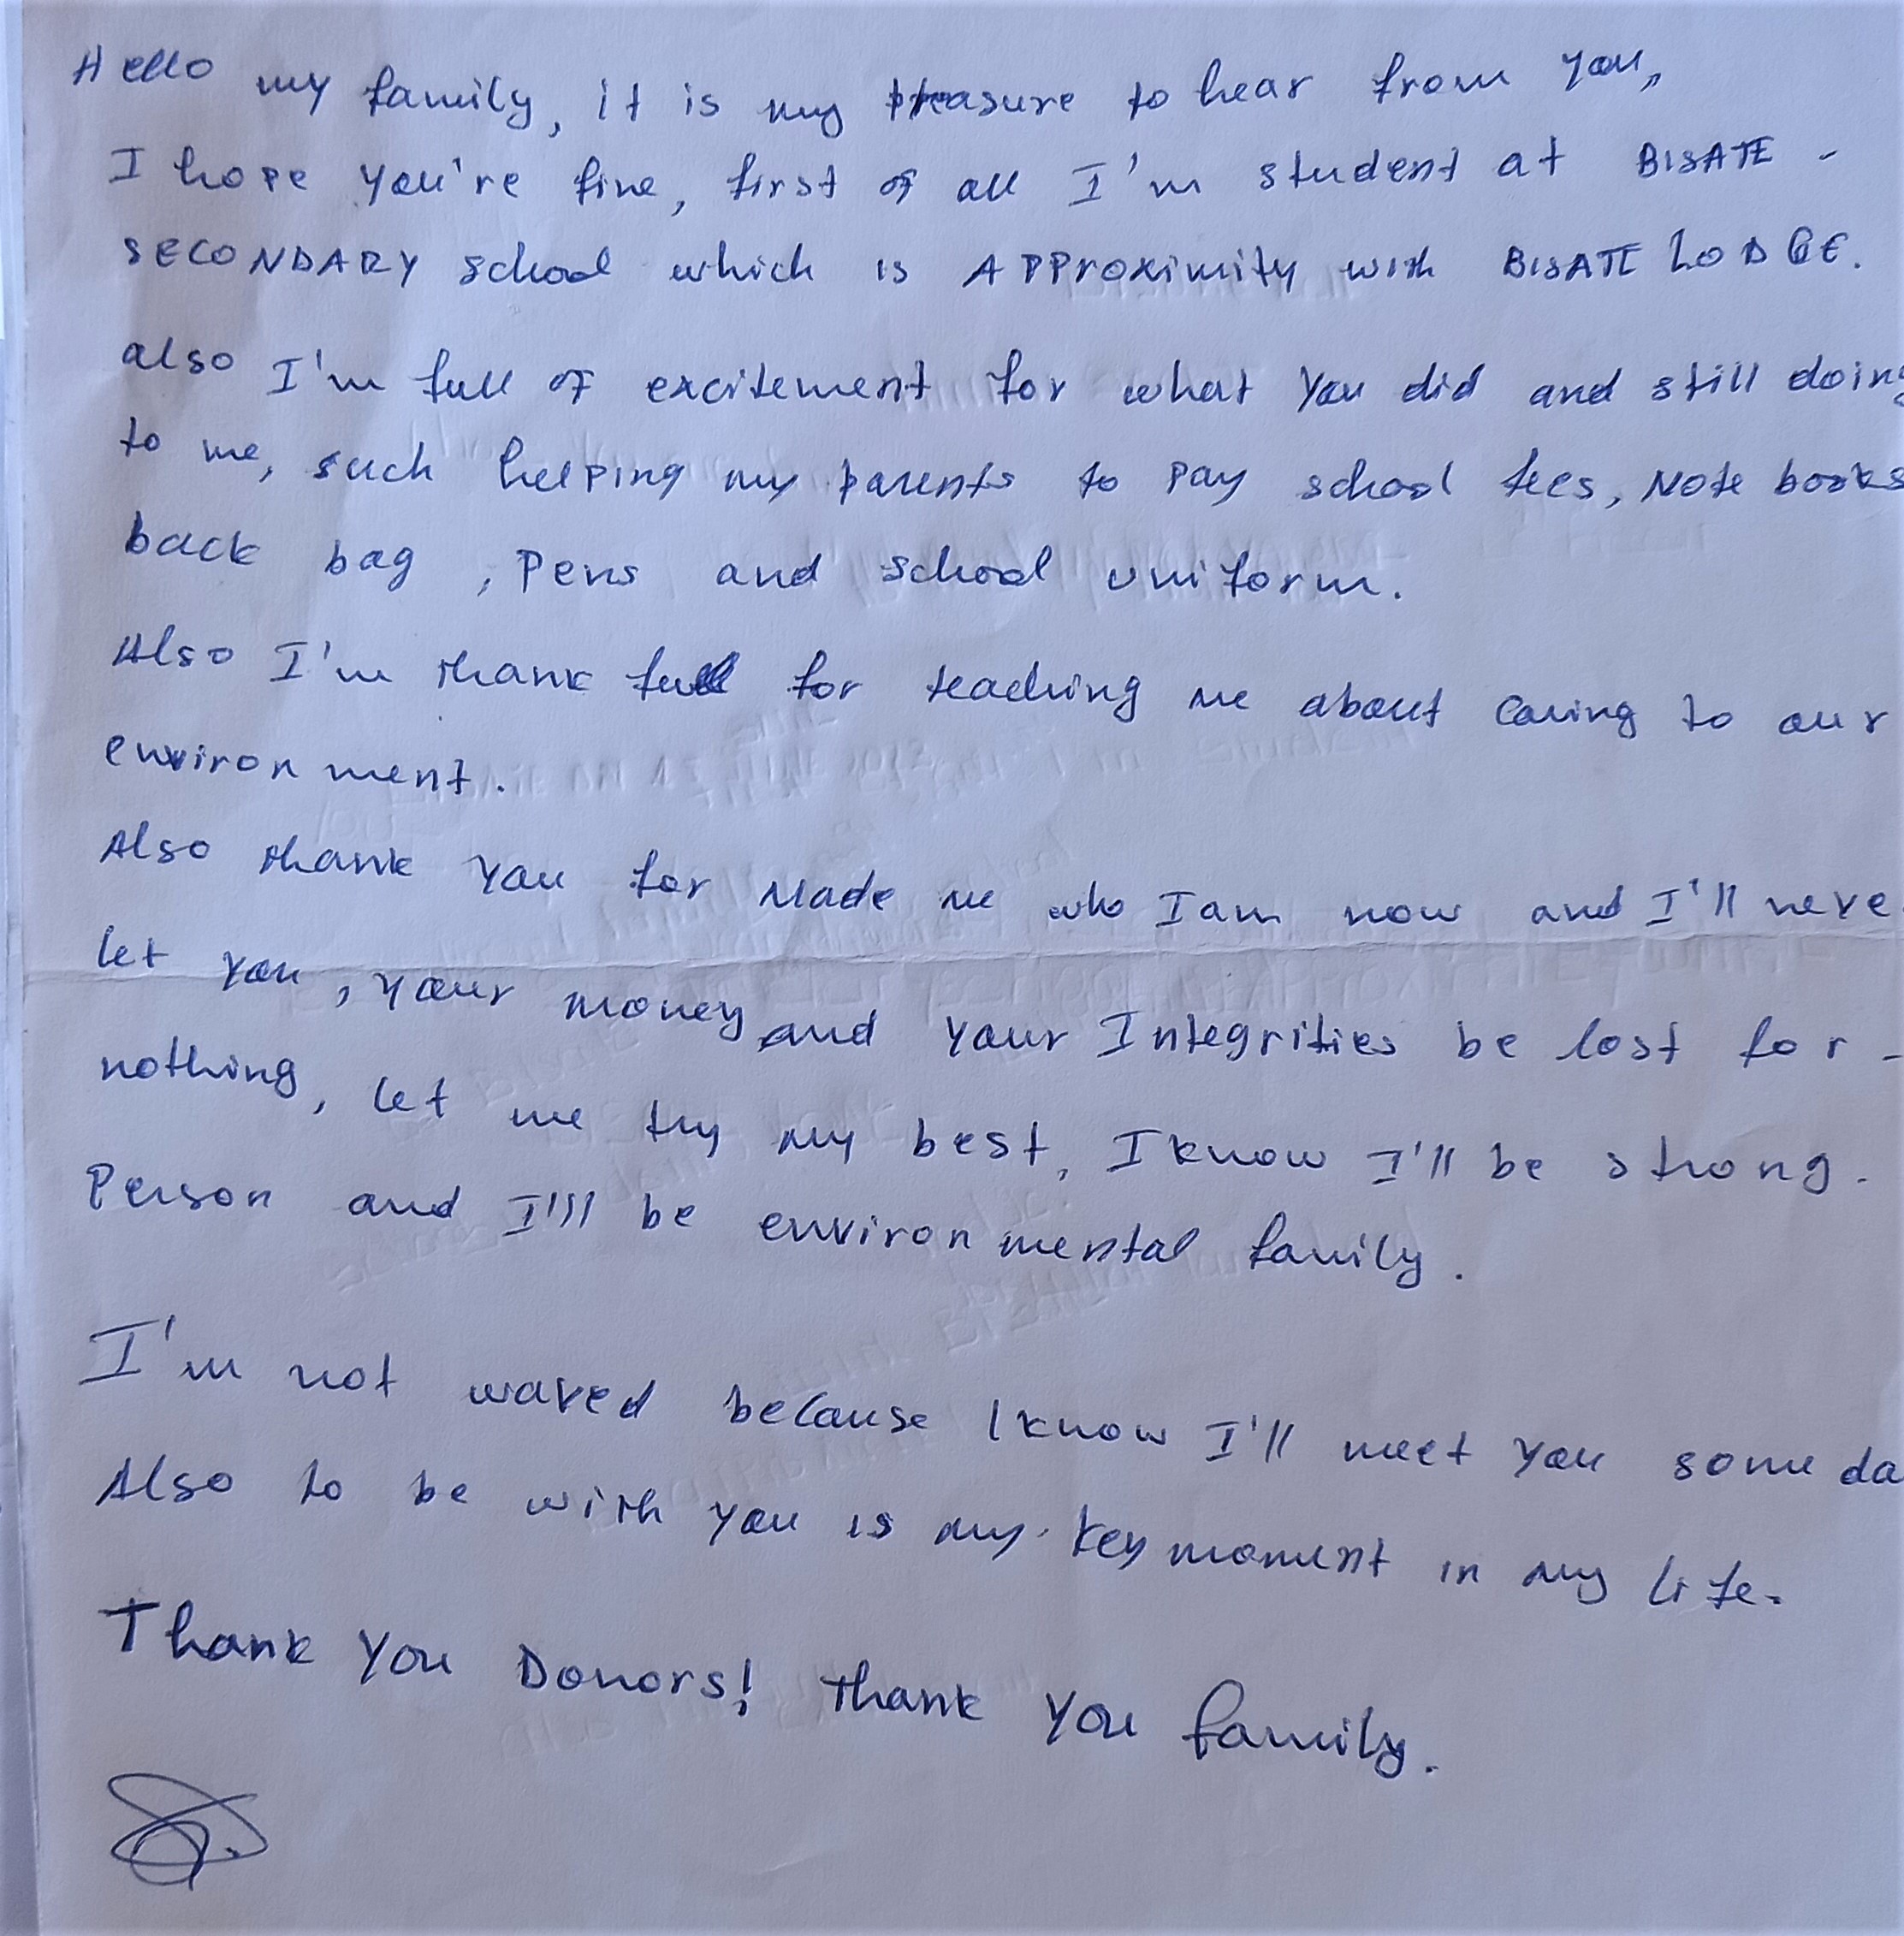 Hello my family, it is my pleasure to hear from you,,
I hope you're fine, first of all I'm student at BISATE -
SECONDARY school which is APProximity with BISATE LODGE.
also I'm full of excitement for what you did and still doing
to me, such helping my parents to pay school fees, Note books
back bag, Pens and school uniform.
Also I'm thank full for teaching me about caring to our
environment.
Also thank you for Made me who I am now and I'll neve
let you, your money and your Integrities be lost for -
nothing, let me try my best, I know I'll be strong.
Person and I'll be environmental family.
I'm not waved because I know I'll meet you some da
Also to be with you is my key moment in my life.
Thank You Donors! Thank You family.